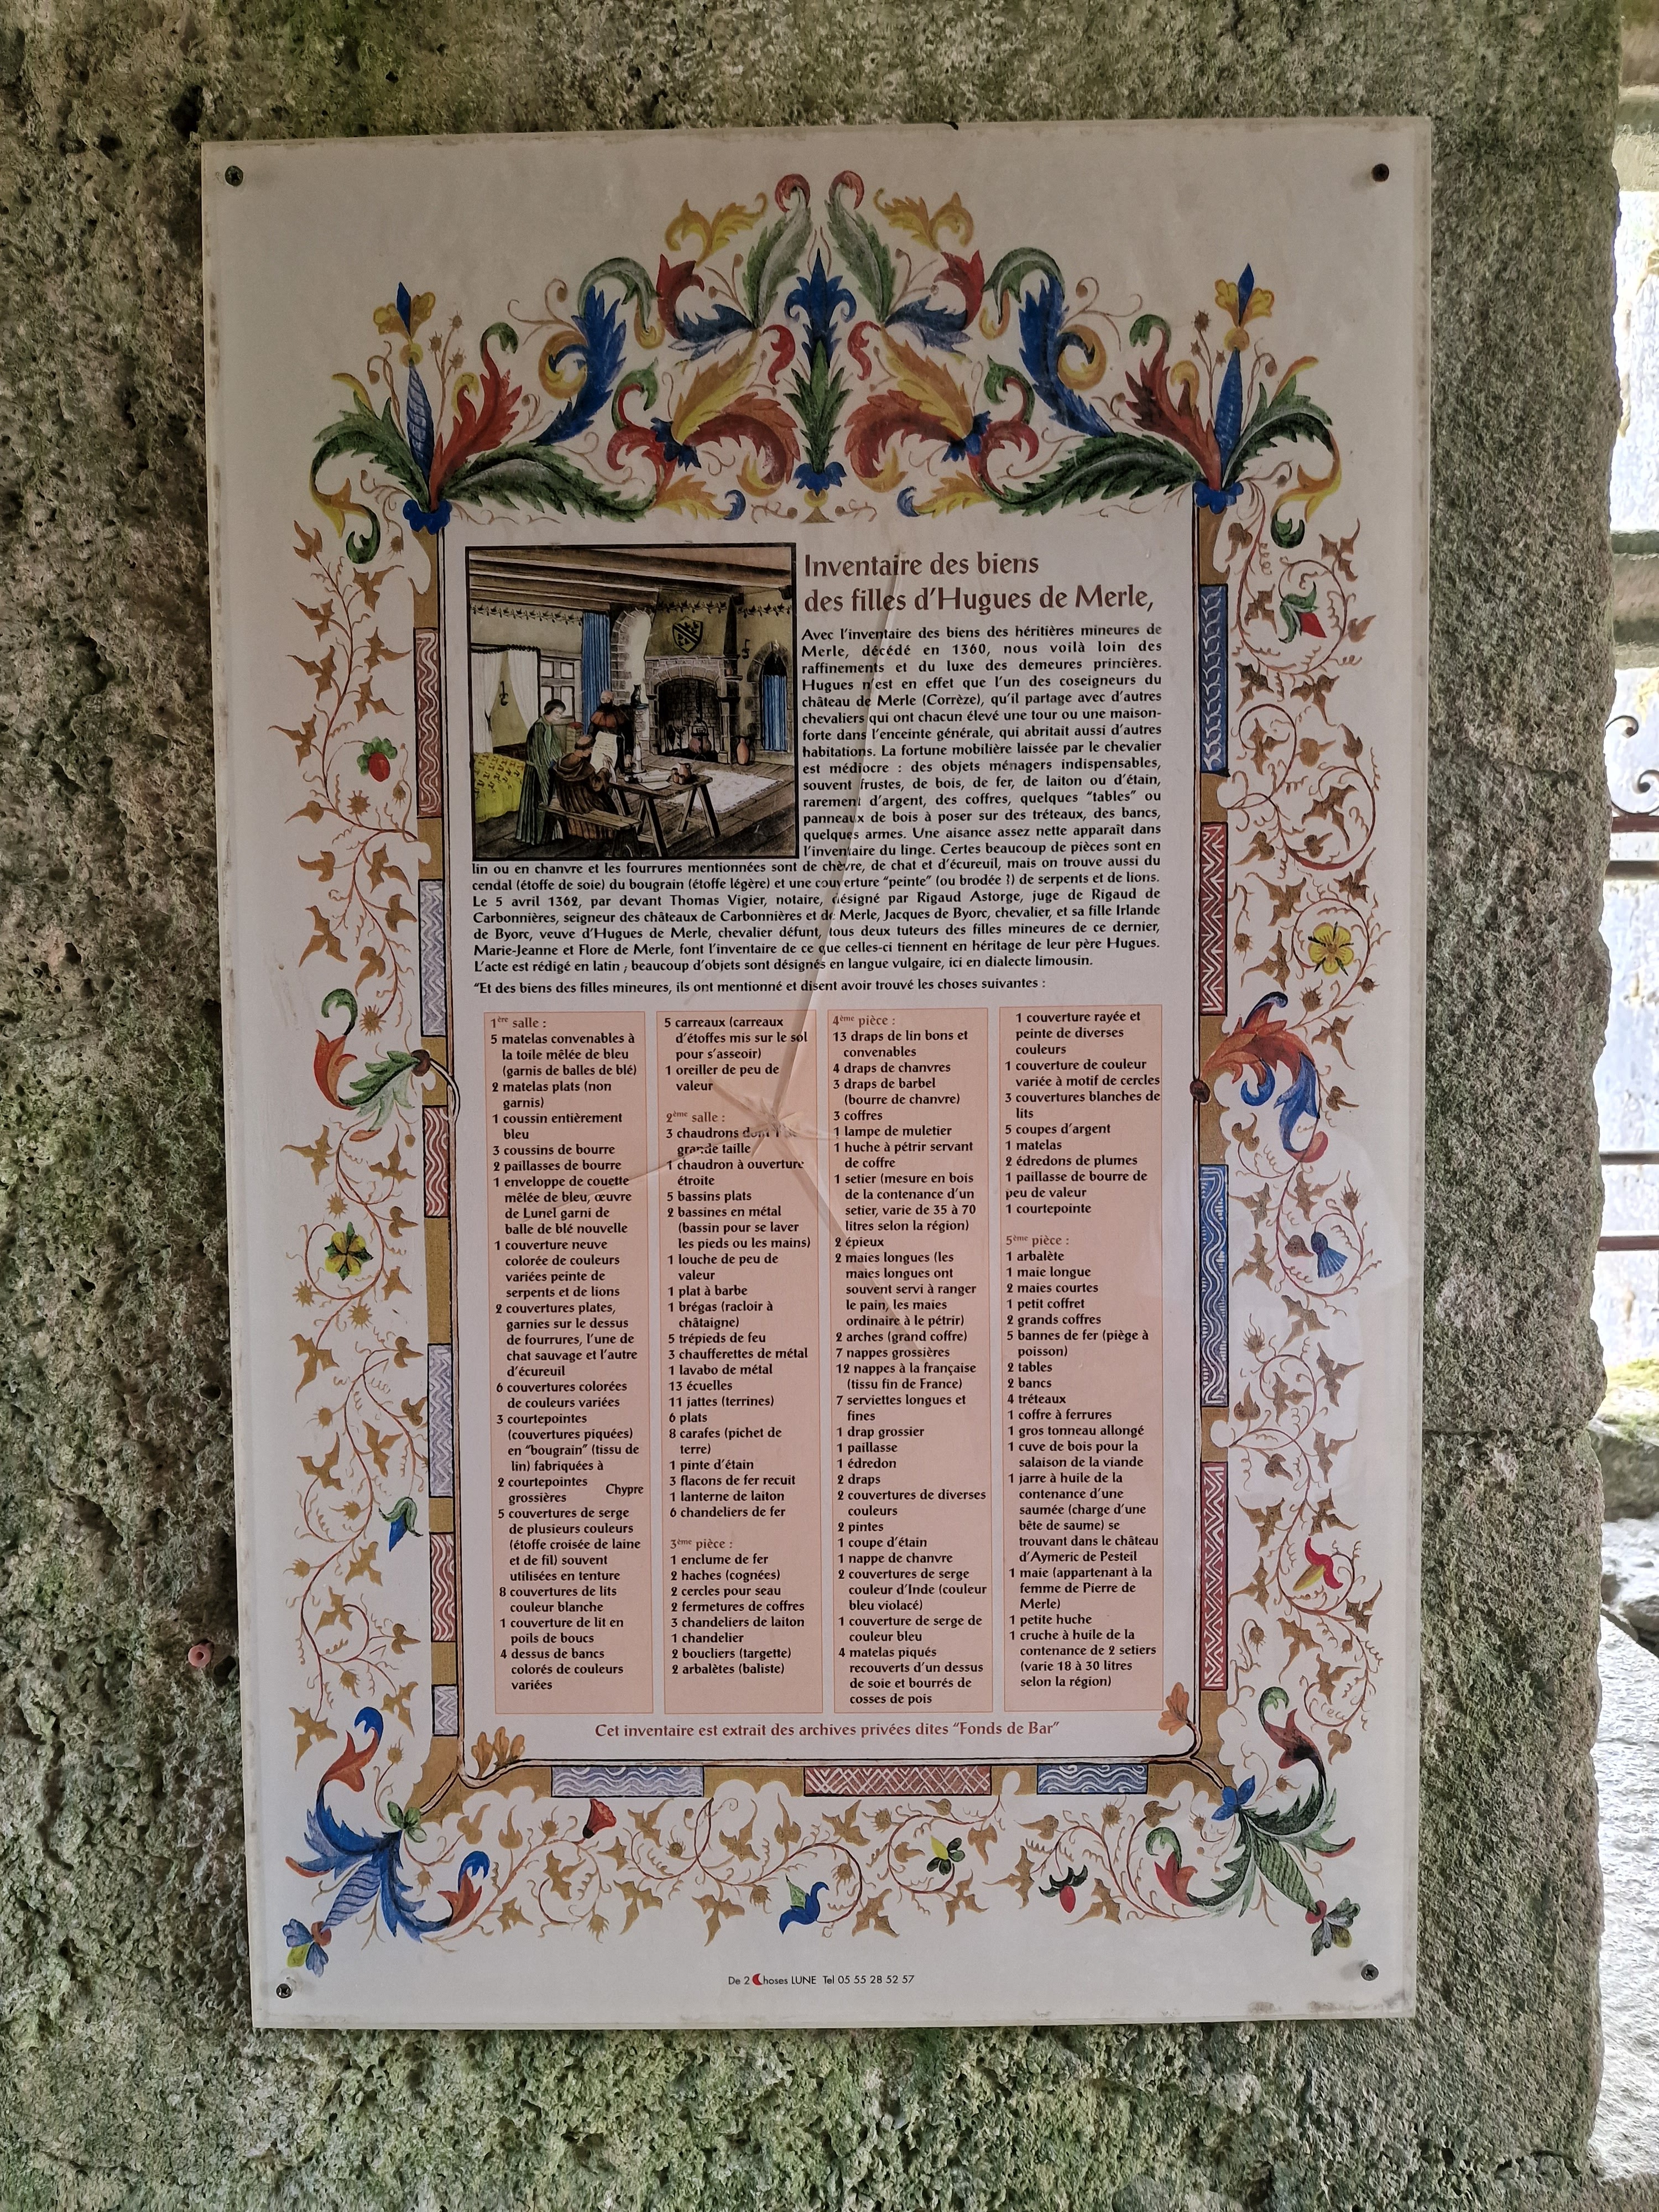 Inventaire des biens
des filles d'Hugues de Merle,
Avec l'inventaire des biens des héritières mineures de
Merle, décédé en 1360, nous voilà loin des
raffinements et du luxe des demeures princières.
Hugues n'est en effet que l'un des coseigneurs du
château de Merle (Corrèze), qu'il partage avec d'autres
chevaliers qui ont chacun élevé une tour ou une maison-
forte dans l'enceinte générale, qui abritait aussi d'autres
habitations. La fortune mobilière laissée par le chevalier
est médiocre : des objets ménagers indispensables,
souvent frustes, de bois, de fer, de laiton ou d'étain,
rarement d'argent, des coffres, quelques "tables" ou
panneaux de bois à poser sur des tréteaux, des bancs,
quelques armes. Une aisance assez nette apparaît dans
l'inventaire du linge. Certes beaucoup de pièces sont en
lin ou en chanvre et les fourrures mentionnées sont de chèvre, de chat et d'écureuil, mais on trouve aussi du
cendal (étoffe de soie) du bougrain (étoffe légère) et une couverture "peinte" (ou brodée ?) de serpents et de lions.
Le 5 avril 1362, par devant Thomas Vigier, notaire, désigné par Rigaud Astorge, juge de Rigaud de
Carbonnières, seigneur des châteaux de Carbonnières et de Merle, Jacques de Byorc, chevalier, et sa fille Irlande
de Byorc, veuve d'Hugues de Merle, chevalier défunt, tous deux tuteurs des filles mineures de ce dernier,
Marie-Jeanne et Flore de Merle, font l'inventaire de ce que celles-ci tiennent en héritage de leur père Hugues.
L'acte est rédigé en latin ; beaucoup d'objets sont désignés en langue vulgaire, ici en dialecte limousin.
"Et des biens des filles mineures, ils ont mentionné et disent avoir trouvé les choses suivantes :
1ère salle :
5 matelas convenables à
la toile mêlée de bleu
(garnis de balles de blé)
2 matelas plats (non
garnis)
1 coussin entièrement
bleu
3 coussins de bourre
2 paillasses de bourre
1 enveloppe de couette
mêlée de bleu, œuvre
de Lunel garni de
balle de blé nouvelle
1 couverture neuve
colorée de couleurs
variées peinte de
serpents et de lions
2 couvertures plates,
garnies sur le dessus
de fourrures, l'une de
chat sauvage et l'autre
d'écureuil
6 couvertures colorées
de couleurs variées
3 courtepointes
(couvertures piquées)
en "bougrain" (tissu de
lin) fabriquées à
Chypre
2 courtepointes
grossières
5 couvertures de serge
de plusieurs couleurs
(étoffe croisée de laine
et de fil) souvent
utilisées en tenture
8 couvertures de lits
couleur blanche
1 couverture de lit en
poils de boucs
4 dessus de bancs
colorés de couleurs
variées
5 carreaux (carreaux
d'étoffes mis sur le sol
pour s'asseoir)
1 oreiller de peu de
valeur
2ème salle :
3 chaudrons dont 1 de
grande taille
1 chaudron à ouverture
étroite
5 bassins plats
2 bassines en métal
(bassin pour se laver
les pieds ou les mains)
1 louche de peu de
valeur
1 plat à barbe
1 brégas (racloir à
châtaigne)
5 trépieds de feu
3 chaufferettes de métal
1 lavabo de métal
13 écuelles
11 jattes (terrines)
6 plats
8 carafes (pichet de
terre)
1 pinte d'étain
3 flacons de fer recuit
1 lanterne de laiton
6 chandeliers de fer
3ème pièce :
1 enclume de fer
2 haches (cognées)
2 cercles pour seau
2 fermetures de coffres
3 chandeliers de laiton
1 chandelier
2 boucliers (targette)
2 arbalètes (baliste)
4ème pièce :
13 draps de lin bons et
convenables
4 draps de chanvres
3 draps de barbel
(bourre de chanvre)
3 coffres
1 lampe de muletier
1 huche à pétrir servant
de coffre
1 setier (mesure en bois
de la contenance d'un
setier, varie de 35 à 70
litres selon la région)
2 épieux
2 maies longues (les
maies longues ont
souvent servi à ranger
le pain, les maies
ordinaire à le pétrir)
2 arches (grand coffre)
7 nappes grossières
12 nappes à la française
(tissu fin de France)
7 serviettes longues et
fines
1 drap grossier
1 paillasse
1 édredon
2 draps
2 couvertures de diverses
couleurs
2 pintes
1 coupe d'étain
1 nappe de chanvre
2 couvertures de serge
couleur d'Inde (couleur
bleu violacé)
1 couverture de serge de
couleur bleu
4 matelas piqués
recouverts d'un dessus
de soie et bourrés de
cosses de pois
1 couverture rayée et
peinte de diverses
couleurs
1 couverture de couleur
variée à motif de cercles
3 couvertures blanches de
lits
5 coupes d'argent
1 matelas
2 édredons de plumes
1 paillasse de bourre de
peu de valeur
1 courtepointe
5ème pièce :
1 arbalète
1 maie longue
2 maies courtes
1 petit coffret
2 grands coffres
5 bannes de fer (piège à
poisson)
2 tables
2 bancs
4 tréteaux
1 coffre à ferrures
1 gros tonneau allongé
1 cuve de bois pour la
salaison de la viande
1 jarre à huile de la
contenance d'une
saumée (charge d'une
bête de saume) se
trouvant dans le château
d'Aymeric de Pesteil
1 maie (appartenant à la
femme de Pierre de
Merle)
1 petite huche
1 cruche à huile de la
contenance de 2 setiers
(varie 18 à 30 litres
selon la région)
Cet inventaire est extrait des archives privées dites "Fonds de Bar"
De 2 Choses LUNE Tel 05 55 28 52 57